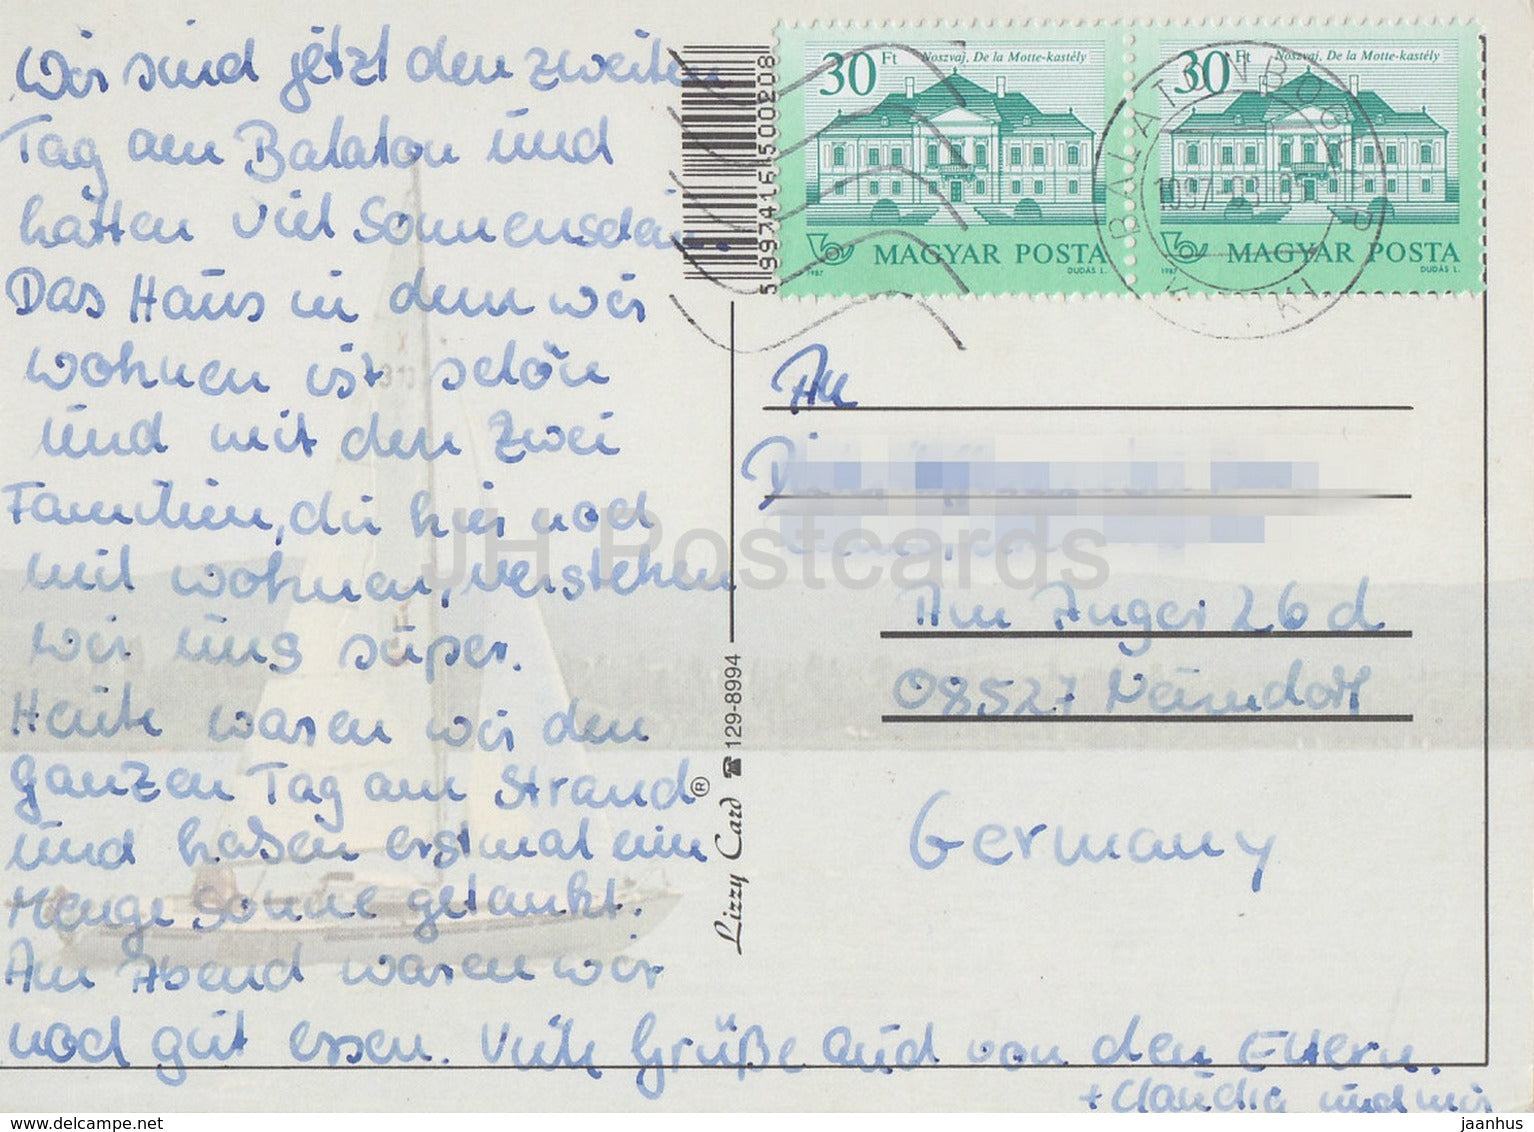 Wir sind jetzt den zweiten
Tag am Balaton und
hatten viel Sonnenschein.
Das Haus in dem wir
wohnen ist schön
und mit den zwei
Familien, die hier noch
mit wohnen, verstehen
wir uns super.
Heute waren wir den
ganzen Tag am Strand
und haben erstmal ein
Menge Sonne getankt.
Am Abend waren wir
noch gut essen. Viele Grüße auch von den Eltern.
+ Claudia und mir
5997415500208
30 Ft Noszvaj, De la Motte-kastély
MAGYAR POSTA
1987 DUDÁS L.
30 Ft Noszvaj, De la Motte-kastély
MAGYAR POSTA
1987 DUDÁS L.
BALATONBOGLÁR
An
Am Anger 26 d
08527 Neundorf
Germany
Lizzy Card ® ☎ 129-8994
JH Postcards
hippostcard.com
jaanhus